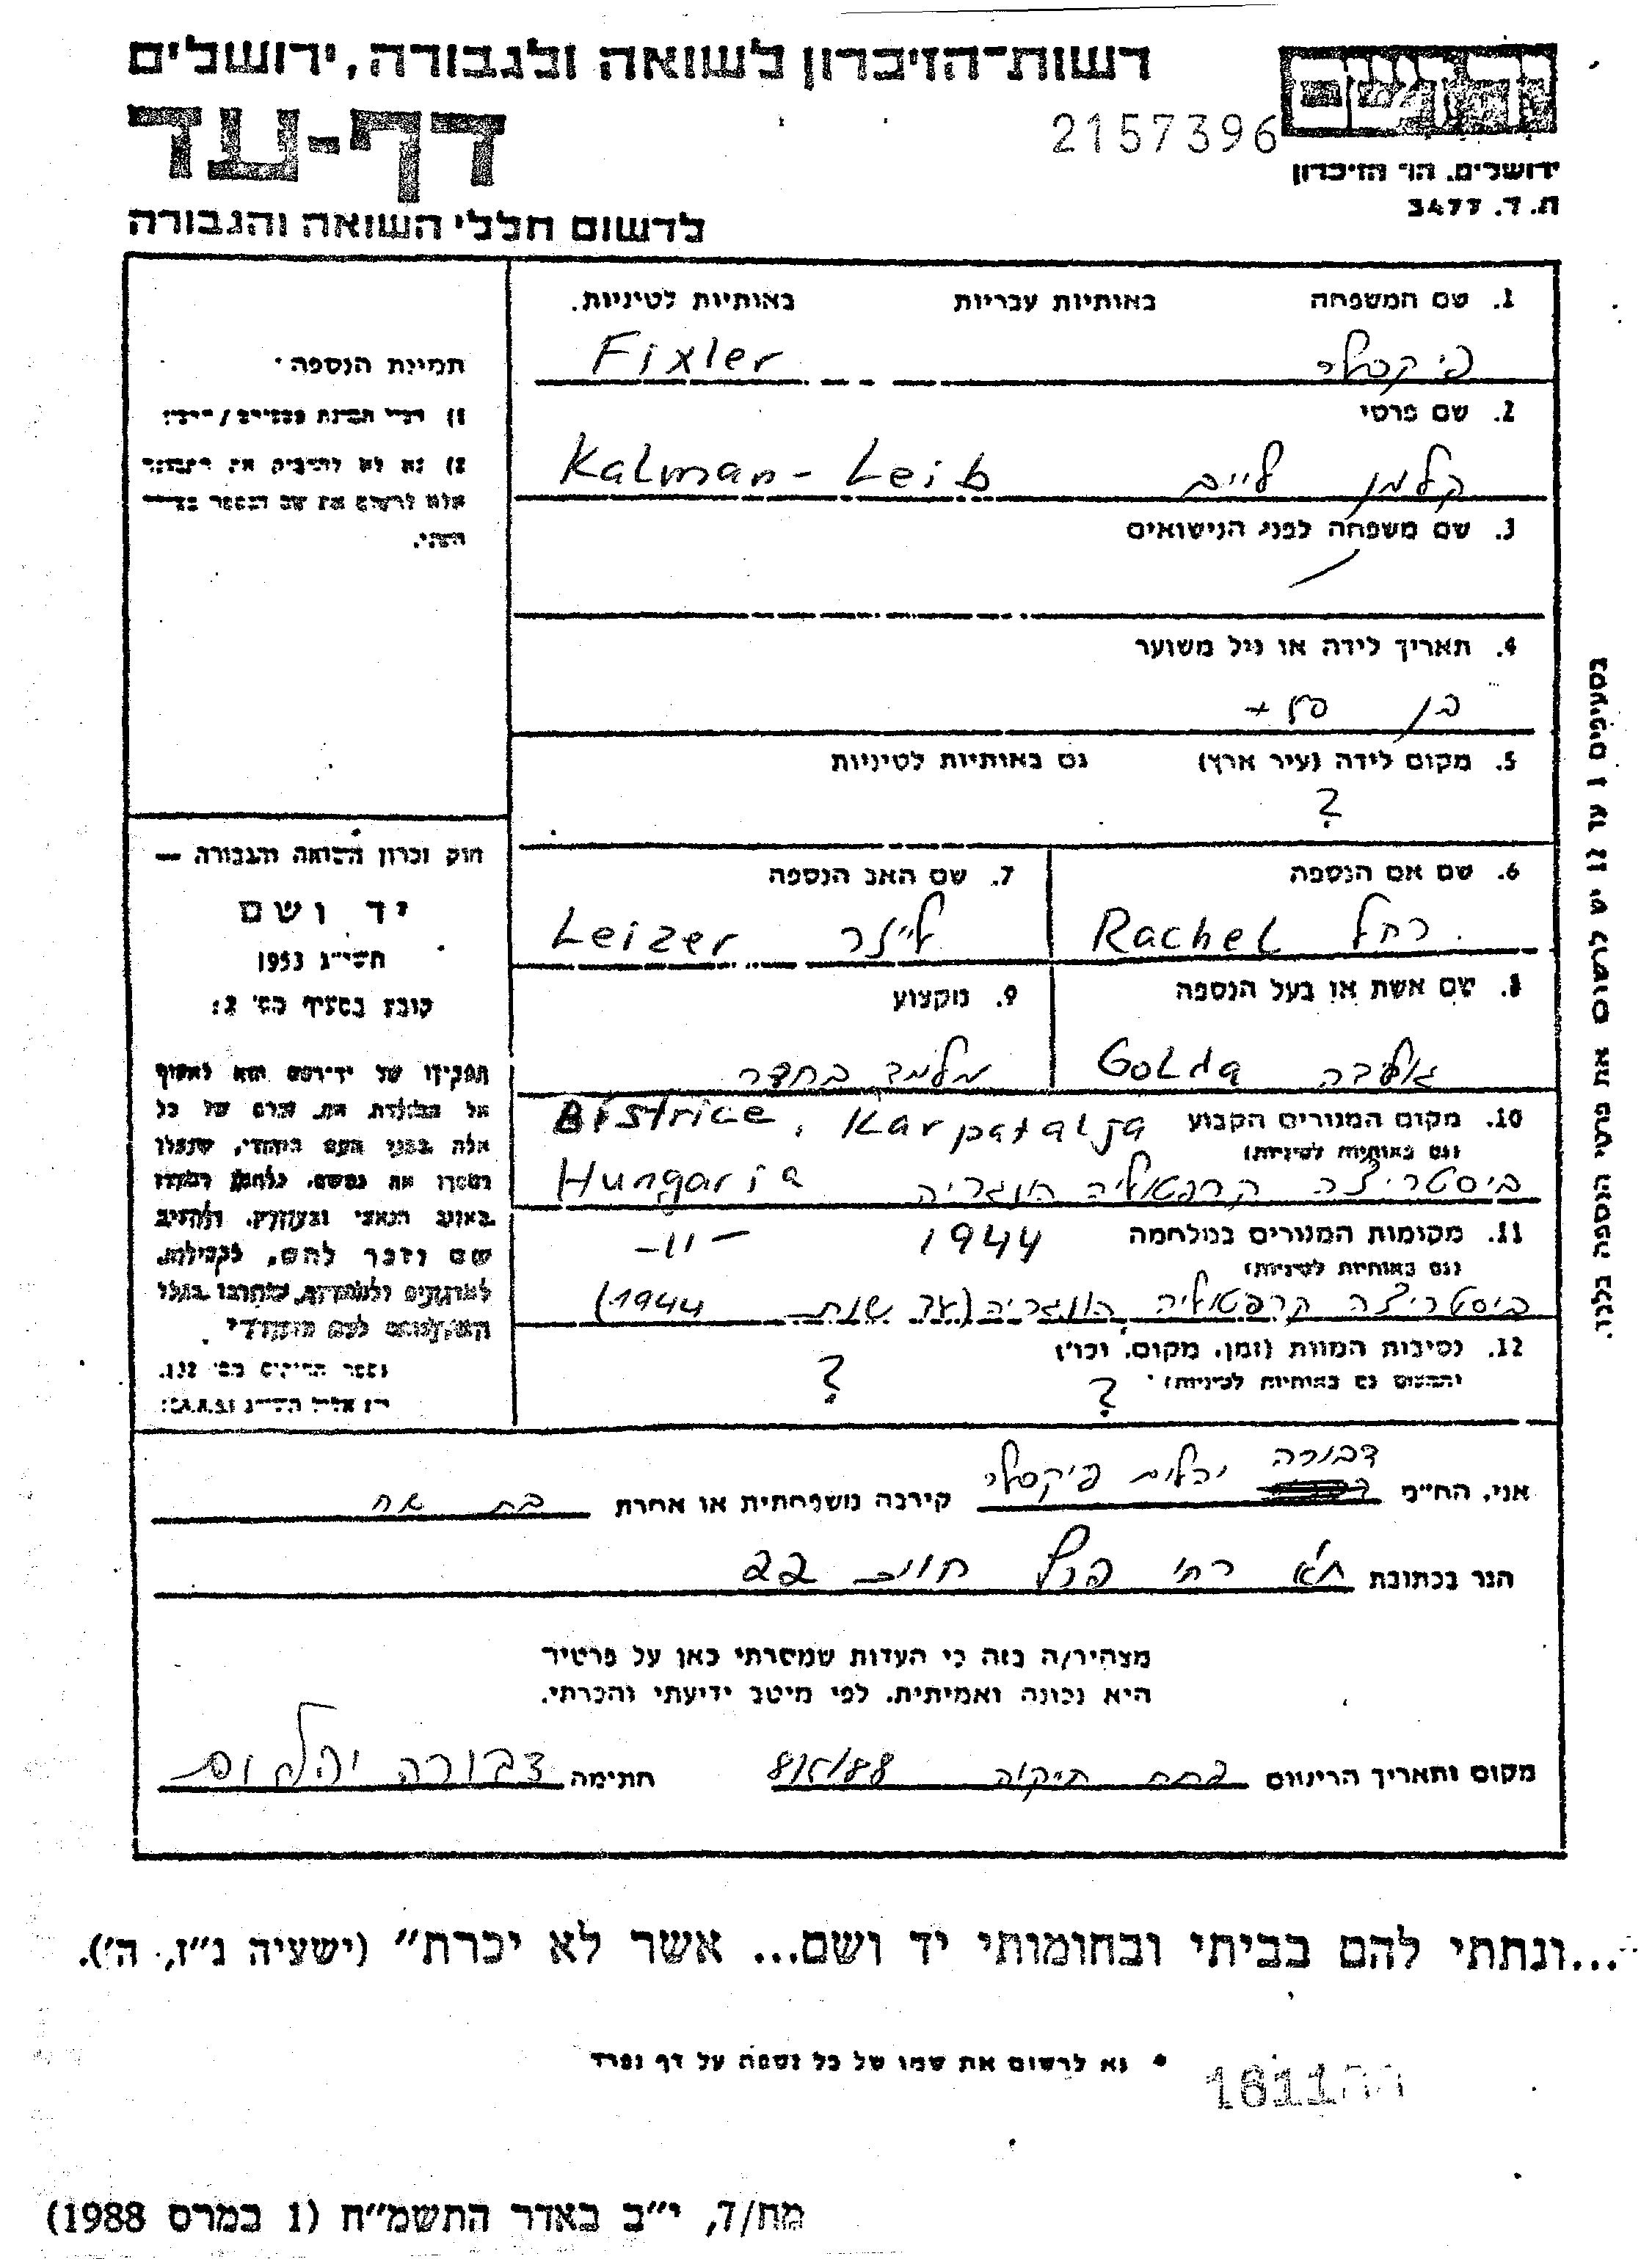 רשות-הזיכרון לשואה ולגבורה, ירושלים
דף-עד
2157396
ירושלים. הר הזיכרון
ת. ד. 3477
לרשום חללי השואה והגבורה
1. שם המשפחה באותיות עבריות באותיות לטיניות.
פיקסלר Fixler
2. שם פרטי
קלמן לייב Kalman - Leib
3. שם משפחה לפני הנישואים
4. תאריך לידה או גיל משוער
בן +50
5. מקום לידה (עיר ארץ) גם באותיות לטיניות
?
6. שם אם הנספה
רחל Rachel
7. שם האב הנספה
לייזר Leizer
8. שם אשת או בעל הנספה
גולדה Golda
9. מקצוע
מלמד בחדר
10. מקום המגורים הקבוע
(גם באותיות לטיניות)
Bistrice, Karpatalja
ביסטריצה קרפטאליה הונגריה Hungaria
11. מקומות המגורים במלחמה 1944 -11-
(גם באותיות לטיניות)
ביסטריצה קרפטאליה הונגריה (עד שנת 1944)
12. נסיבות המוות (זמן, מקום, וכו')
(המקום גם באותיות לטיניות) ? ?
תמונת הנספה
חוק זכרון השואה והגבורה –
יד ושם
תשי"ג 1953
קובע בסעיף מס' 2:
תפקידו של יד-ושם הוא לאסוף
אל המולדת את זכרם של כל
אלה מבני העם היהודי, שנפלו
ומסרו את נפשם, נלחמו ומרדו
באויב הנאצי ובעוזריו, ולהציב
שם וזכר להם, לקהילות,
לארגונים ולמוסדות, שחרבו בגלל
השתייכותם לעם היהודי.
בסעיפים ז עד 12 יש לרשום את פרטי הנספה בלבד.
אני, הח"מ דבורה יהלום פיקסלר קירבה משפחתית או אחרת בת אח
הגר בכתובת ת"א רח' פרץ חיות 22
מצהיר/ה בזה כי העדות שמסרתי כאן על פרטיה
היא נכונה ואמיתית, לפי מיטב ידיעתי והכרתי.
מקום ותאריך הרישום פתח תיקוה 8/5/88 חתימה דבורה יהלום
...ונתתי להם בביתי ובחומותי יד ושם... אשר לא יכרת" (ישעיה נ"ו, ה').
* נא לרשום את שמו של כל נספה על דף נפרד
מח/ד, י"ב באדר התשמ"ח (1 במרס 1988)